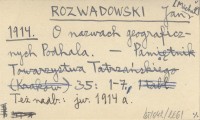 ROZWADOWSKI Jan (Michał)
1914. O nazwach geograficz-
nych Podhala. — Pamiętnik
Towarzystwa Tatrzańskiego
(Kraków) 35: 1-7,
Też nadb: jw 1914 a.